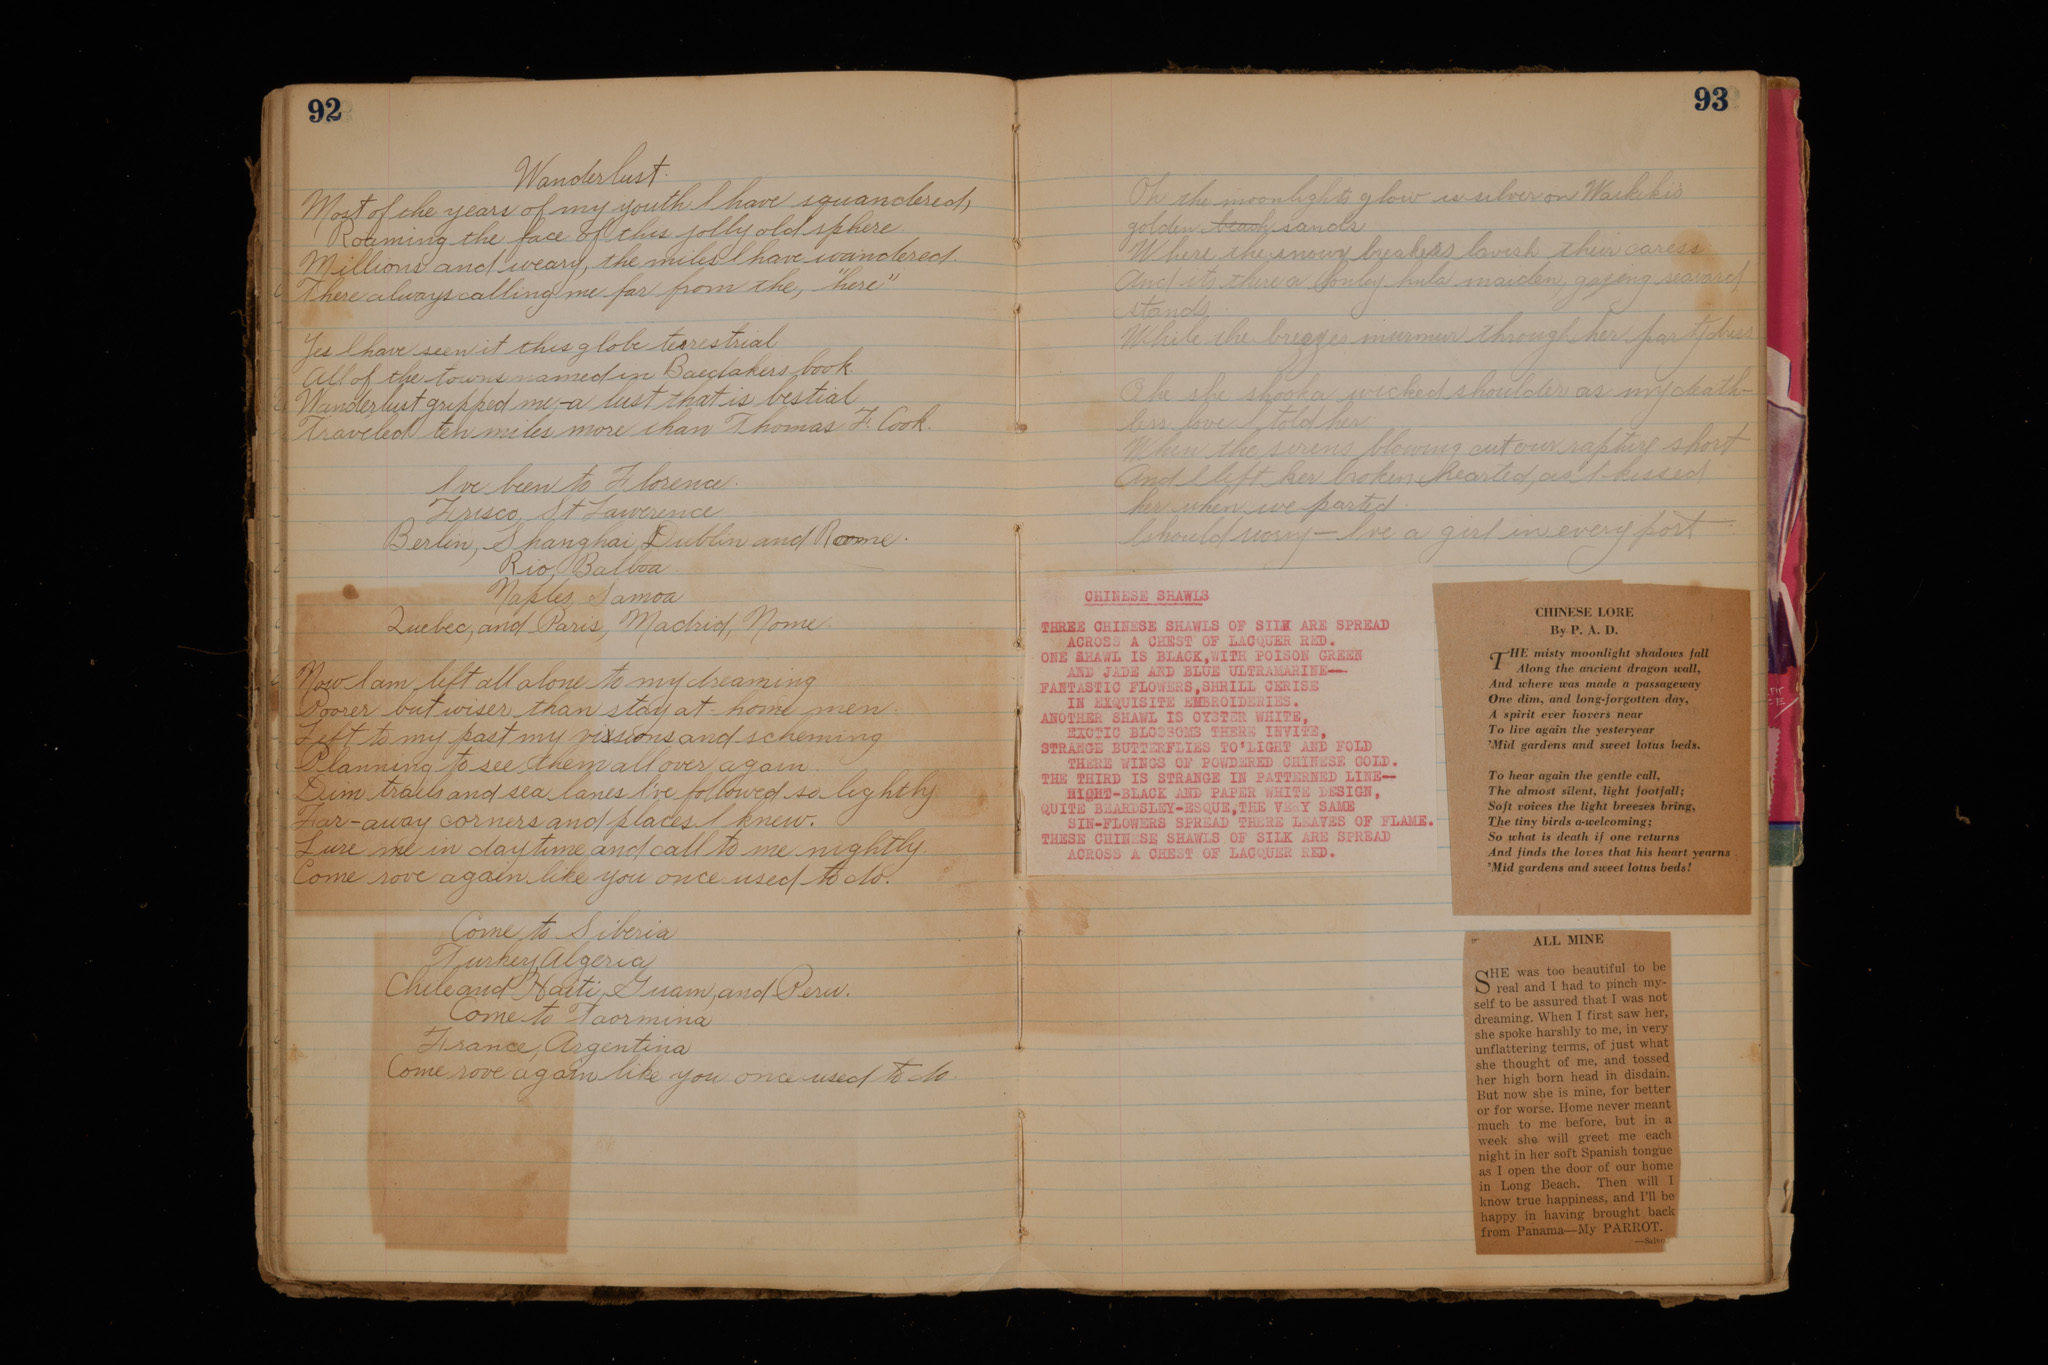 92
Wanderlust.
Most of the years of my youth I have squandered,
Roaming the face of this jolly old sphere.
Millions and weary, the miles I have wandered.
There always calling me far from the, "here"
Yes I have seen it this globe terrestrial
All of the towns named in Baedakers book
Wanderlust gripped me - a lust that is bestial
Traveled ten miles more than Thomas F. Cook.
I've been to Florence.
Frisco, St Lawerence
Berlin, Shanghai, Dublin and Rome.
Rio, Balboa
Naples, Samoa
Quebec, and Paris, Madrid, Nome.
Now I am left all alone to my dreaming
Poorer but wiser than stay at - home men.
Left to my past my vissions and scheming
Planning to see them all over again
Dim trails and sea lanes I've followed so lightly
Far-away corners and places I knew.
Lure me in daytime and call to me nightly
Come rove again like you once used to do.
Come to Siberia
Turkey, Algeria
Chile and Haiti, Guam, and Peru.
Come to Taormina
France, Argentina
Come rove again like you once used to do
93
Oh the moonlights glow is silver on Waikikis
golden beach sands
Where the snowy breakers lavish their caress
And its there a lonley hula maiden, gazing seaward
stands.
While the breezes murmur through her party dress
Ohe she shook a wicked shoulder as my death-
less love I told her
When the sirens blowing cut our rapture short
And I left her broken hearted, as I kissed
her when we parted.
I should worry - I've a girl in every port -
CHINESE SHAWLS
THREE CHINESE SHAWLS OF SILK ARE SPREAD
ACROSS A CHEST OF LACQUER RED.
ONE SHAWL IS BLACK,WITH POISON GREEN
AND JADE AND BLUE ULTRAMARINE--
FANTASTIC FLOWERS,SHRILL CERISE
IN EXQUISITE EMBROIDERIES.
ANOTHER SHAWL IS OYSTER WHITE,
EXOTIC BLOSSOMS THERE INVITE,
STRANGE BUTTERFLIES TO'LIGHT AND FOLD
THERE WINGS OF POWDERED CHINESE GOLD.
THE THIRD IS STRANGE IN PATTERNED LINE--
NIGHT-BLACK AND PAPER WHITE DESIGN,
QUITE BEARDSLEY-ESQUE,THE VERY SAME
SIN-FLOWERS SPREAD THERE LEAVES OF FLAME.
THESE CHINESE SHAWLS OF SILK ARE SPREAD
ACROSS A CHEST OF LACQUER RED.
CHINESE LORE
By P. A. D.
THE misty moonlight shadows fall
Along the ancient dragon wall,
And where was made a passageway
One dim, and long-forgotten day,
A spirit ever hovers near
To live again the yesteryear
'Mid gardens and sweet lotus beds.
To hear again the gentle call,
The almost silent, light footfall;
Soft voices the light breezes bring,
The tiny birds a-welcoming;
So what is death if one returns
And finds the loves that his heart yearns
'Mid gardens and sweet lotus beds!
ALL MINE
SHE was too beautiful to be
real and I had to pinch my-
self to be assured that I was not
dreaming. When I first saw her,
she spoke harshly to me, in very
unflattering terms, of just what
she thought of me, and tossed
her high born head in disdain.
But now she is mine, for better
or for worse. Home never meant
much to me before, but in a
week she will greet me each
night in her soft Spanish tongue
as I open the door of our home
in Long Beach. Then will I
know true happiness, and I'll be
happy in having brought back
from Panama—My PARROT.